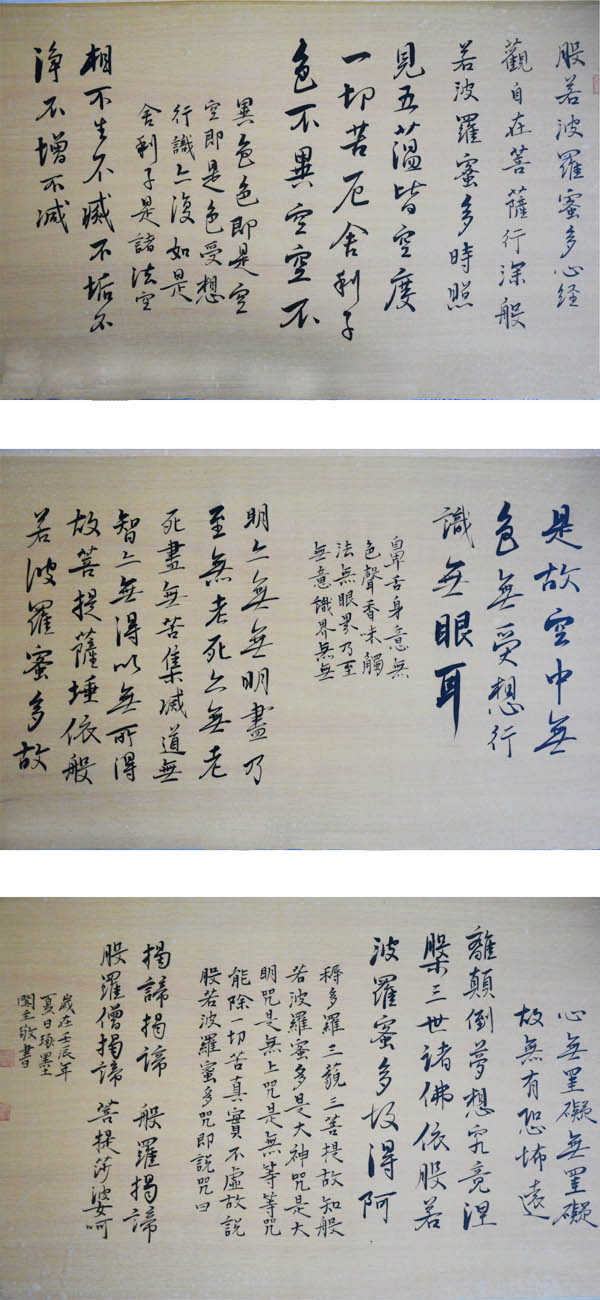 般若波羅蜜多心经
觀自在菩薩行深般
若波羅蜜多時照
見五蕰皆空度
一切苦厄舍利子
色不異空空不
異色色即是空
空即是色受想
行識亦復如是
舍利子是諸法空
相不生不滅不垢不
淨不增不減
是故空中無
色無受想行
識無眼耳
鼻舌身意無
色聲香味觸
法無眼界乃至
無意識界無無
明亦無無明盡乃
至無老死亦無老
死盡無苦集滅道無
智亦無得以無所得
故菩提薩埵依般
若波羅蜜多故
心無罣礙無罣礙
故無有恐怖遠
離顛倒夢想究竟涅
槃三世諸佛依般若
波羅蜜多故得阿
耨多羅三藐三菩提故知般
若波羅蜜多是大神咒是大
明咒是無上咒是無等等咒
能除一切苦真實不虛故說
般若波羅蜜多咒即說咒曰
揭諦揭諦 般羅揭諦
般羅僧揭諦 菩提莎婆呵
歲在壬辰年
夏日 墨
敬書